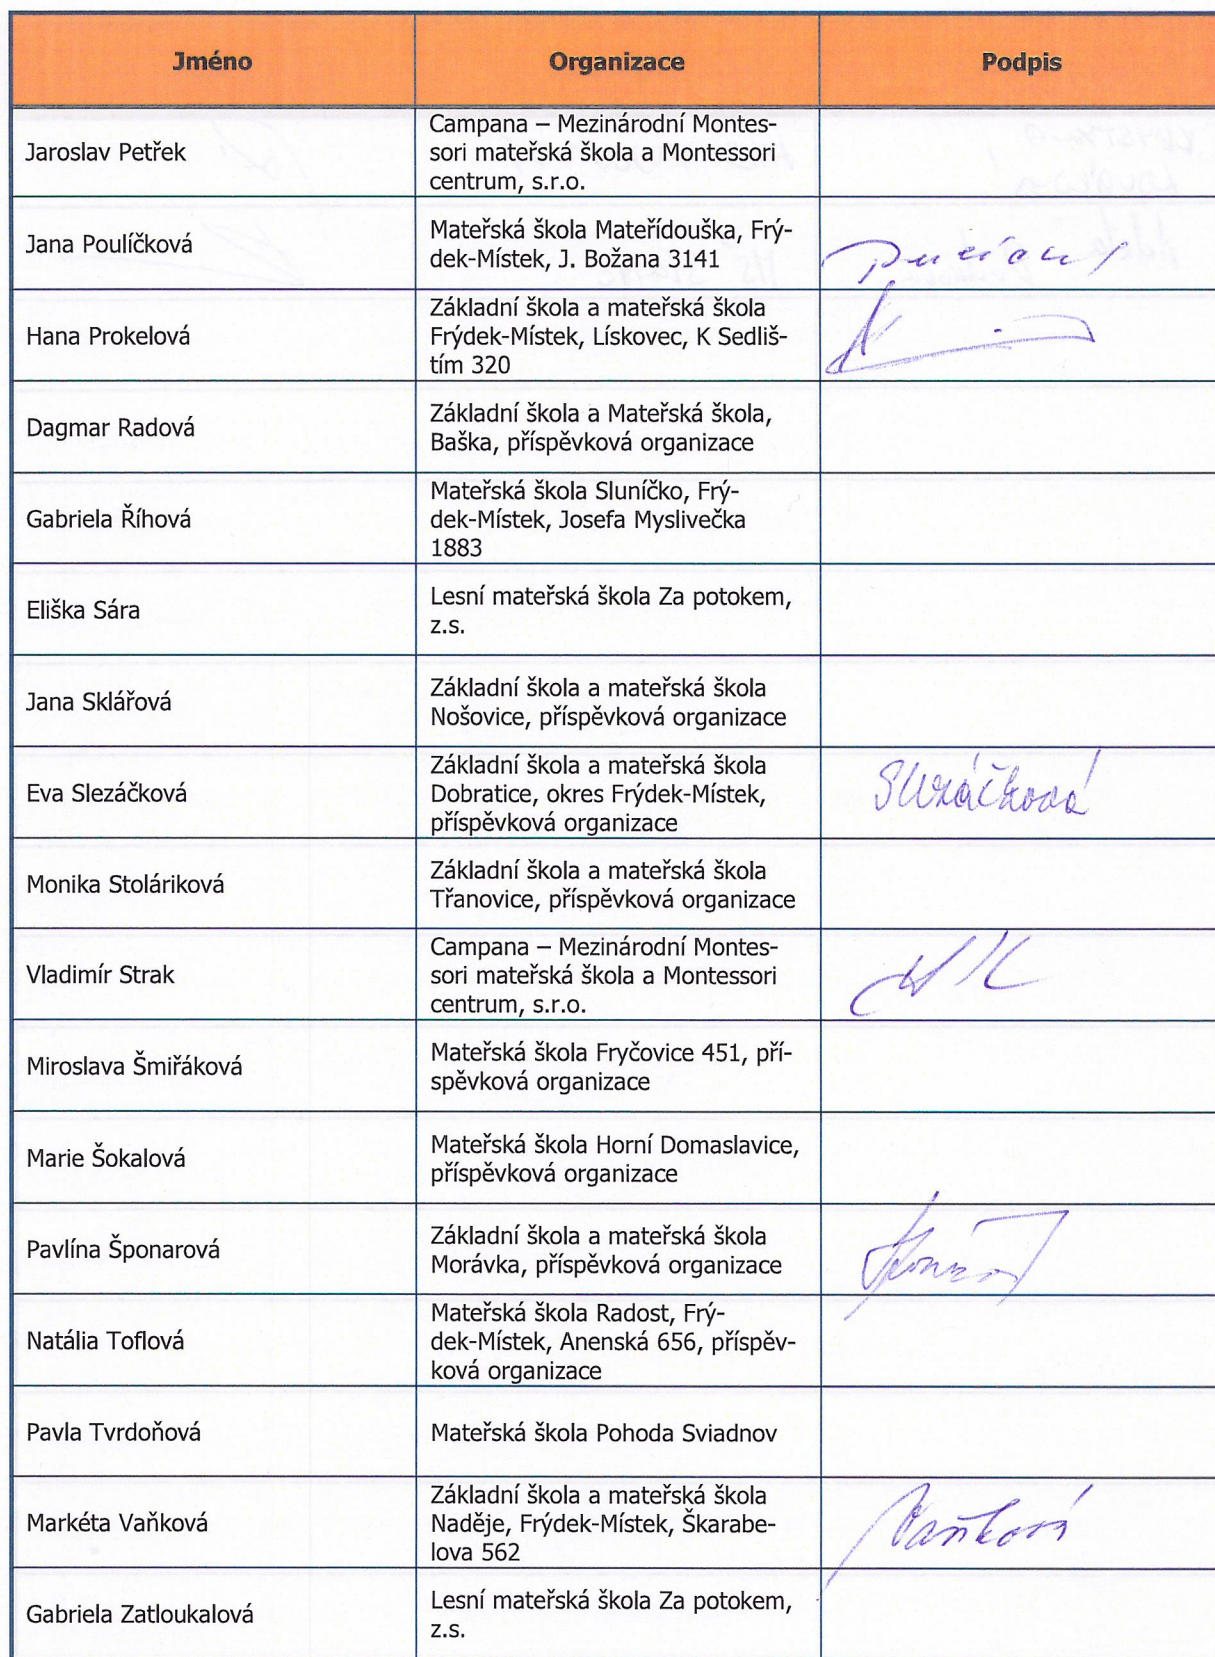 Jméno Organizace Podpis
Jaroslav Petřek
Campana – Mezinárodní Montes-
sori mateřská škola a Montessori
centrum, s.r.o.
Jana Poulíčková
Mateřská škola Mateřídouška, Frý-
dek-Místek, J. Božana 3141
Hana Prokelová
Základní škola a mateřská škola
Frýdek-Místek, Lískovec, K Sedliš-
tím 320
Dagmar Radová
Základní škola a Mateřská škola,
Baška, příspěvková organizace
Gabriela Říhová
Mateřská škola Sluníčko, Frý-
dek-Místek, Josefa Myslivečka
1883
Eliška Sára
Lesní mateřská škola Za potokem,
z.s.
Jana Sklářová
Základní škola a mateřská škola
Nošovice, příspěvková organizace
Eva Slezáčková
Základní škola a mateřská škola
Dobratice, okres Frýdek-Místek,
příspěvková organizace
Slezáčková
Monika Stoláriková
Základní škola a mateřská škola
Třanovice, příspěvková organizace
Vladimír Strak
Campana – Mezinárodní Montes-
sori mateřská škola a Montessori
centrum, s.r.o.
Miroslava Šmiřáková
Mateřská škola Fryčovice 451, pří-
spěvková organizace
Marie Šokalová
Mateřská škola Horní Domaslavice,
příspěvková organizace
Pavlína Šponarová
Základní škola a mateřská škola
Morávka, příspěvková organizace
Natália Toflová
Mateřská škola Radost, Frý-
dek-Místek, Anenská 656, příspěv-
ková organizace
Pavla Tvrdoňová
Mateřská škola Pohoda Sviadnov
Markéta Vaňková
Základní škola a mateřská škola
Naděje, Frýdek-Místek, Škarabe-
lova 562
Vaňková
Gabriela Zatloukalová
Lesní mateřská škola Za potokem,
z.s.